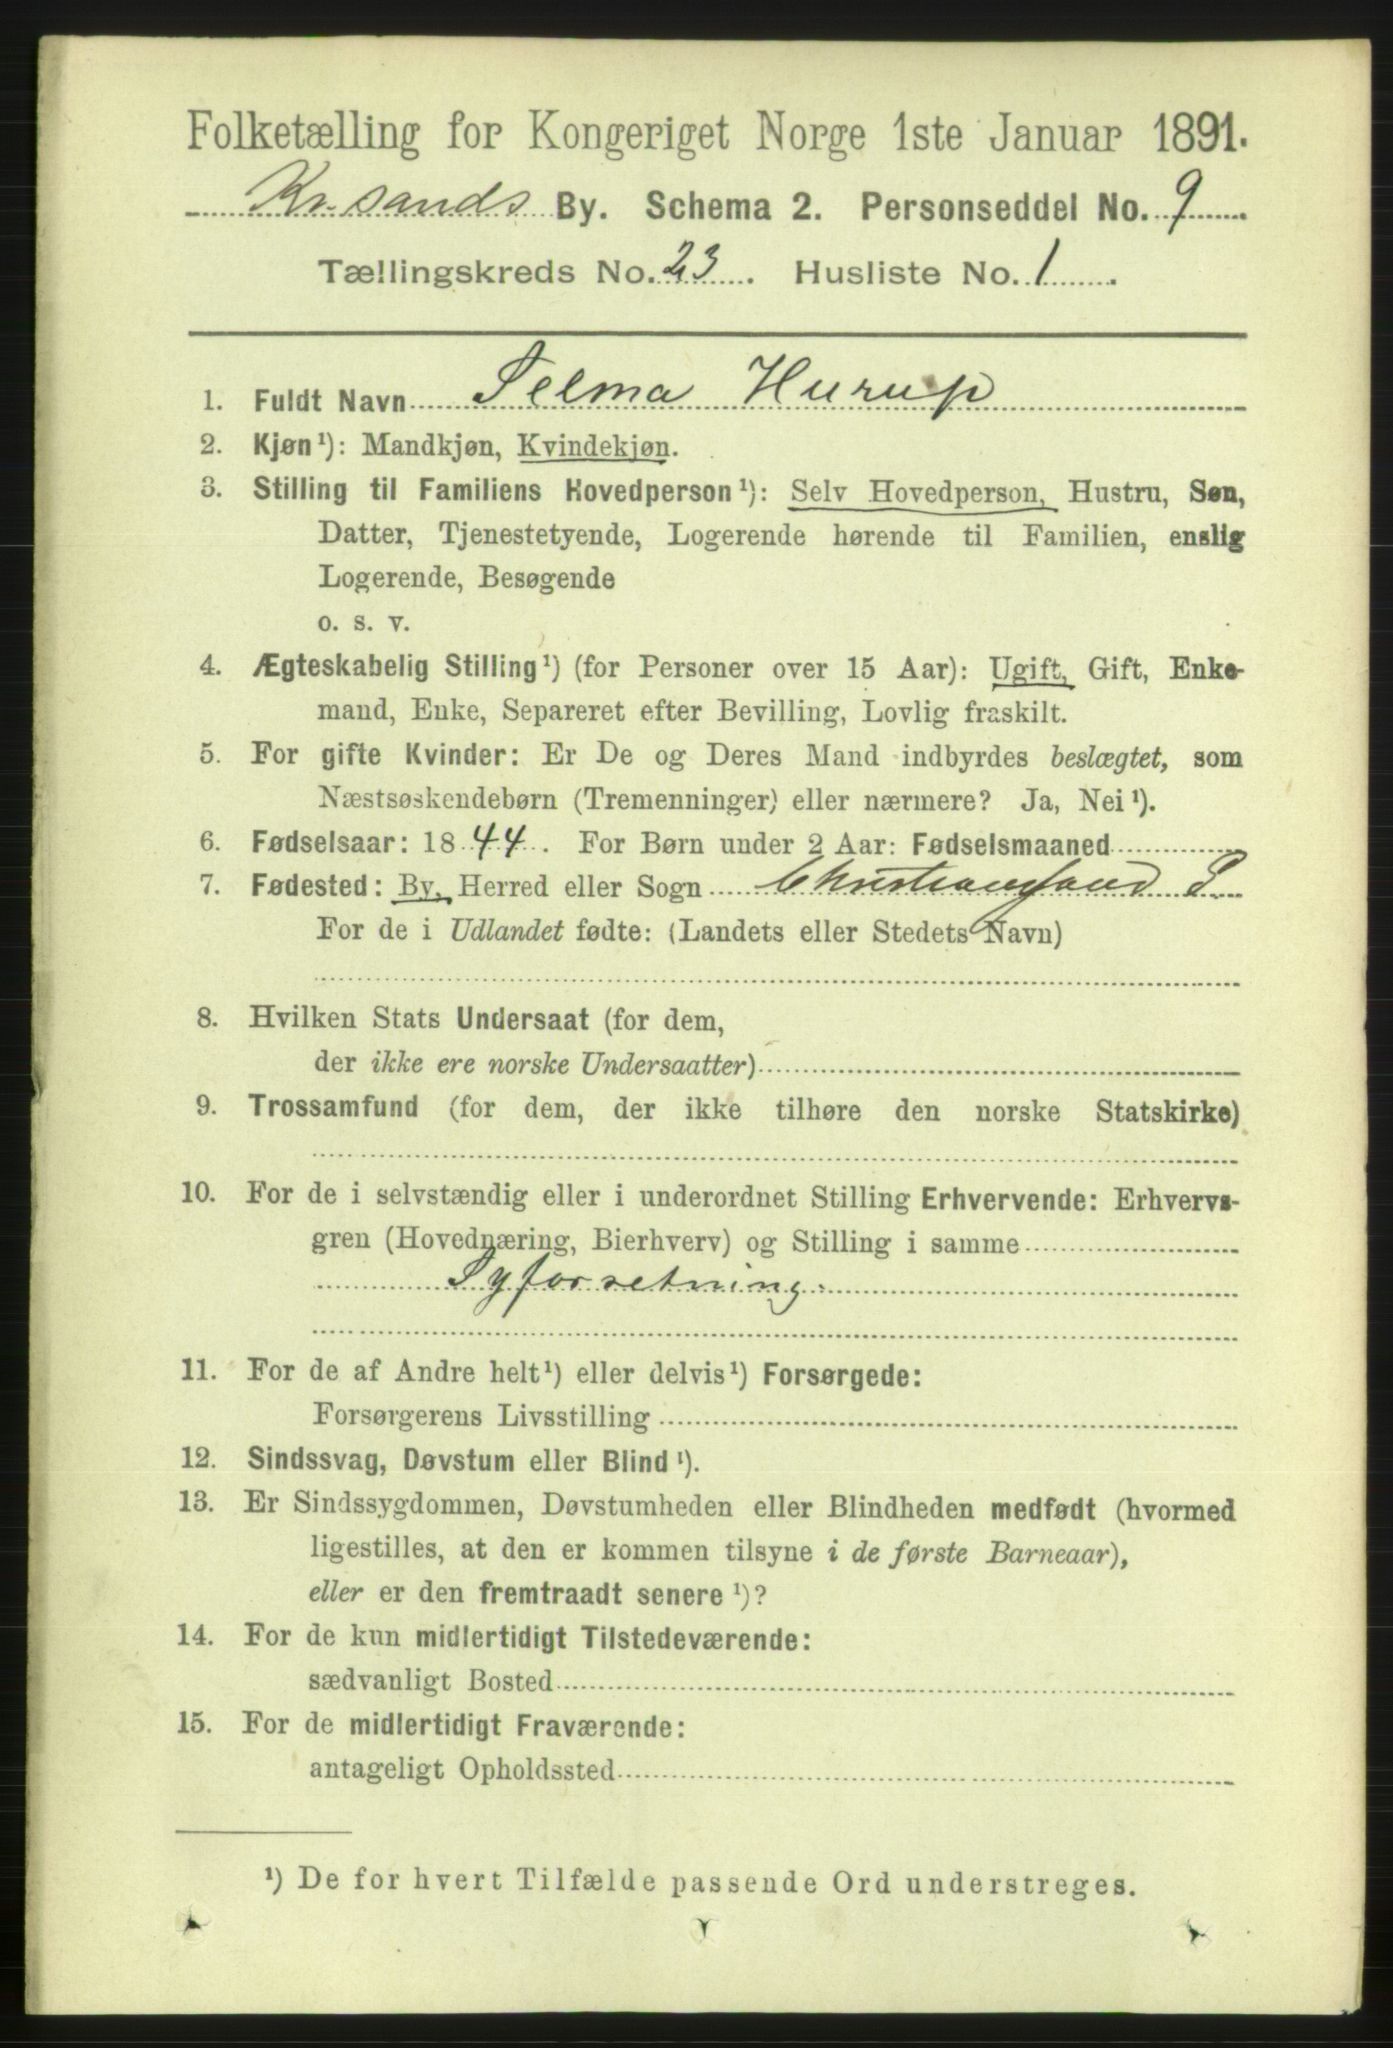 Folketælling for Kongeriget Norge 1ste Januar 1891.
Kr.sands By. Schema 2. Personseddel No. 9
Tællingskreds No. 23. Husliste No. 1.
1. Fuldt Navn Selma Hurup
2. Kjøn¹): Mandkjøn, Kvindekjøn.
3. Stilling til Familiens Hovedperson¹): Selv Hovedperson, Hustru, Søn,
Datter, Tjenestetyende, Logerende hørende til Familien, enslig
Logerende, Besøgende
o. s. v.
4. Ægteskabelig Stilling¹) (for Personer over 15 Aar): Ugift, Gift, Enke-
mand, Enke, Separeret efter Bevilling, Lovlig fraskilt.
5. For gifte Kvinder: Er De og Deres Mand indbyrdes beslægtet, som
Næstsøskendebørn (Tremenninger) eller nærmere? Ja, Nei¹).
6. Fødselsaar: 1844. For Børn under 2 Aar: Fødselsmaaned
7. Fødested: By, Herred eller Sogn Christiansand S
For de i Udlandet fødte: (Landets eller Stedets Navn)
8. Hvilken Stats Undersaat (for dem,
der ikke ere norske Undersaatter)
9. Trossamfund (for dem, der ikke tilhøre den norske Statskirke)
10. For de i selvstændig eller i underordnet Stilling Erhvervende: Erhvervs-
gren (Hovednæring, Bierhverv) og Stilling i samme
Syforretning.
11. For de af Andre helt¹) eller delvis¹) Forsørgede:
Forsørgerens Livsstilling
12. Sindssvag, Døvstum eller Blind¹).
13. Er Sindssygdommen, Døvstumheden eller Blindheden medfødt (hvormed
ligestilles, at den er kommen tilsyne i de første Barneaar),
eller er den fremtraadt senere¹)?
14. For de kun midlertidigt Tilstedeværende:
sædvanligt Bosted
15. For de midlertidigt Fraværende:
antageligt Opholdssted
¹) De for hvert Tilfælde passende Ord understreges.